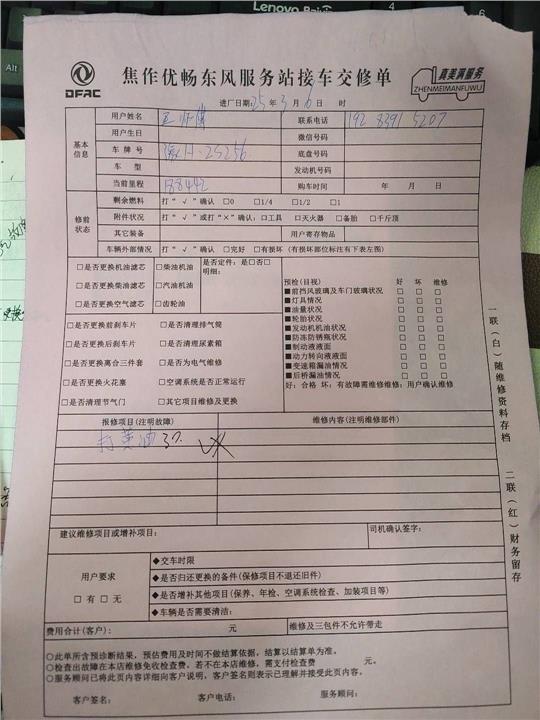 Lenovo
Alt
DFAC
焦作优畅东风服务站接车交修单
真美满服务
ZHENMEIMANFUWU
进厂日期: 25 年 3 月 6 日 时
基本信息
用户姓名
联系电话 192 8391 5207
用户生日
微信号码
车 牌 号
底盘号码
车 型
发动机号码
当前里程 188442
购车时间 年 月 日
修前状态
剩余燃料 打“√”确认 □0 □1/4 □1/2 □1
附件状况 打“√”或打“×”确认:□工具 □灭火器 □备胎 □千斤顶
其它装备
用户寄存物品
车辆外部情况 打“√”确认 □完好 □有损坏(有损坏部位标注有下表左图)
□是否更换机油滤芯 □柴油机油
□是否更换柴油滤芯 □汽油机油
□是否更换空气滤芯 □齿轮油
是否定件:是□否□
明细:
□是否更换前刹车片 □是否清理排气筒
□是否更换后刹车片 □是否清理尿素箱
□是否更换离合三件套 □是否为电气维修
□是否更换火花塞 □空调系统是否正常运行
□是否清理节气门 □其它项目维修及更换
预检(目视) 好 坏 维修
■前挡风玻璃及车门玻璃状况 □ □ □
■灯具情况 □ □ □
■油量状况 □ □ □
■轮胎状况 □ □ □
■发动机机油状况 □ □ □
■防冻防锈瓶状况 □ □ □
■制动液液面 □ □ □
■动力转向液液面 □ □ □
■变速箱漏油情况 □ □ □
■后桥漏油情况 □ □ □
好:合格 坏:有故障需维修维修:用户确认维修
报修项目(注明故障)
维修内容(注明维修部件)
打黄油 37.
建议维修项目或增补项目:
司机确认签字:
用户要求
□有 □无
◆交车时限
◆是否归还更换的备件(保修项目不退还旧件)
◆是否增补其他项目(保养、年检、空调系统检查、加装项目等)
◆车辆是否需要清洁:
费用合计(客户): 元
维修及三包件不允许带走
○此单所含预诊断结果,预估费用及时间不做结算依据,结算以结算单为准。
○检查出故障在本店维修免收检查费,若不在本店维修,需支付检查费 元。
○服务顾问已将此页内容详细向客户说明,客户签名则表示已理解并接受此页内容。
客户签名: 客户电话: 服务顾问:
一联(白)随维修资料存档
二联(红)财务留存